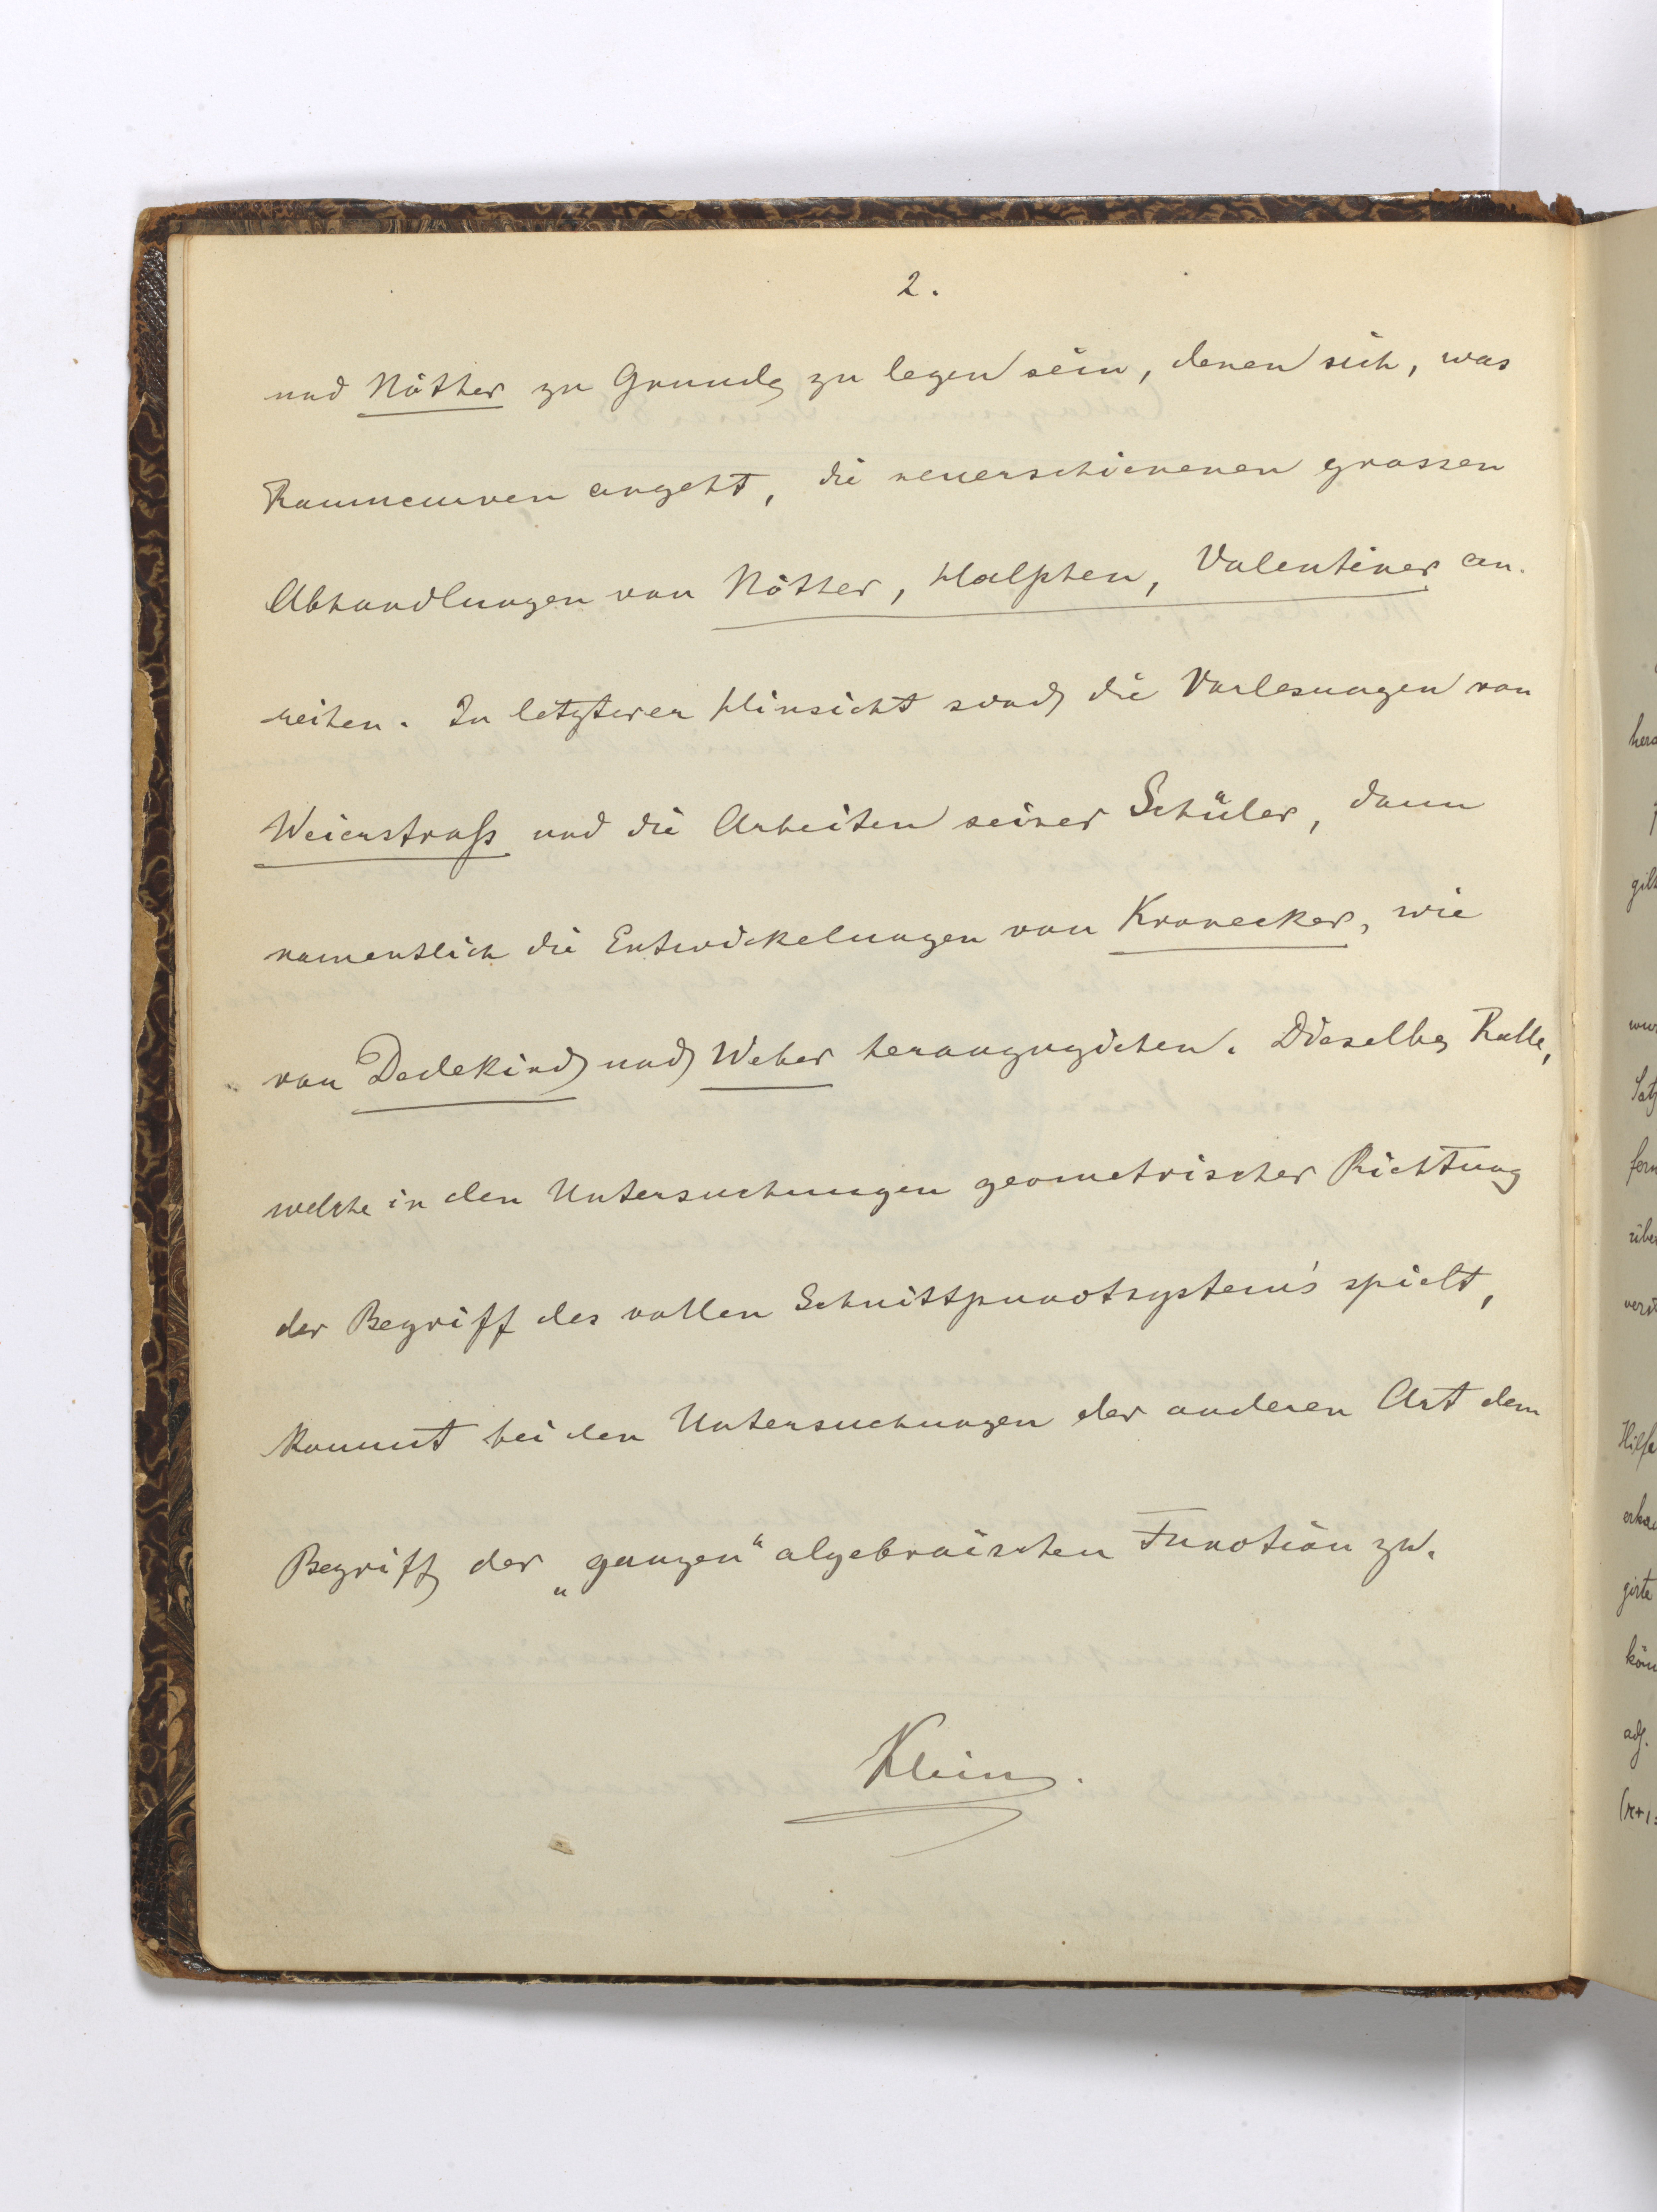 2.
und Nöther zu Grunde zu legen sein, denen sich, was
Raumcurven angeht, die neuerschienenen grossen
Abhandlungen von Nöther, Halphen, Valentiner an-
reihen. In letzterer Hinsicht sind die Vorlesungen von
Weierstraß und die Arbeiten seiner Schüler, dann
namentlich die Entwickelungen von Kronecker, wie
von Dedekind und Weber heranzuziehen. Dieselbe Rolle,
welche in den Untersuchungen geometrischer Richtung
der Begriff des vollen Schnittpunctsystem's spielt,
kommt bei den Untersuchungen der anderen Art dem
Begriff der „ganzen“ algebraischen Function zu.
Klein.
gilt
Hilfs
girte
adj.
(r+1